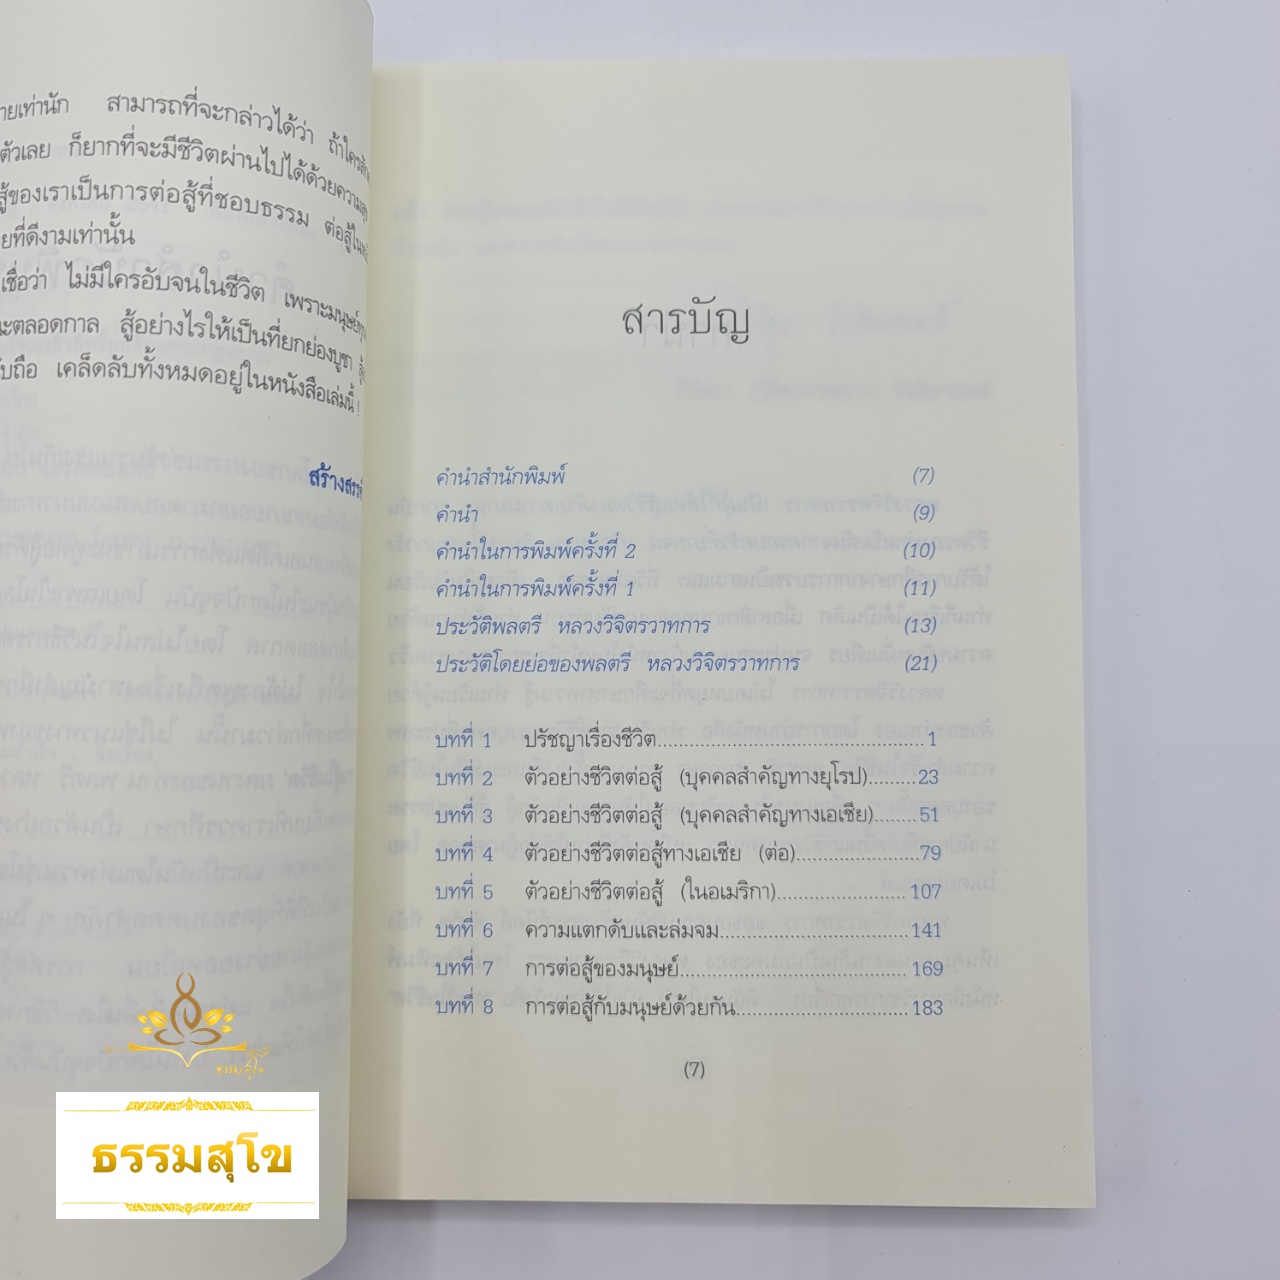 ายเท่านัก สามารถที่จะกล่าวได้ว่า ถ้าใคร
ตัวเลย ก็ยากที่จะมีชีวิตผ่านไปได้ด้วยความสุ
สู้ของเราเป็นการต่อสู้ที่ชอบธรรม ต่อสู้ใน
ยที่ดีงามเท่านั้น
เชื่อว่า ไม่มีใครอับจนในชีวิต เพราะมนุษย์
นะตลอดกาล สู้อย่างไรให้เป็นที่ยกย่องบูชา สู้
ับถือ เคล็ดลับทั้งหมดอยู่ในหนังสือเล่มนี้ !
สร้างสรร
สารบัญ
คำนำสำนักพิมพ์ (7)
คำนำ (9)
คำนำในการพิมพ์ครั้งที่ 2 (10)
คำนำในการพิมพ์ครั้งที่ 1 (11)
ประวัติพลตรี หลวงวิจิตรวาทการ (13)
ประวัติโดยย่อของพลตรี หลวงวิจิตรวาทการ (21)
บทที่ 1 ปรัชญาเรื่องชีวิต 1
บทที่ 2 ตัวอย่างชีวิตต่อสู้ (บุคคลสำคัญทางยุโรป) 23
บทที่ 3 ตัวอย่างชีวิตต่อสู้ (บุคคลสำคัญทางเอเชีย) 51
บทที่ 4 ตัวอย่างชีวิตต่อสู้ทางเอเชีย (ต่อ) 79
บทที่ 5 ตัวอย่างชีวิตต่อสู้ (ในอเมริกา) 107
บทที่ 6 ความแตกดับและล่มจม 141
บทที่ 7 การต่อสู้ของมนุษย์ 169
บทที่ 8 การต่อสู้กับมนุษย์ด้วยกัน 183
(7)
ธรรมสุโข
ธรรมสุโข